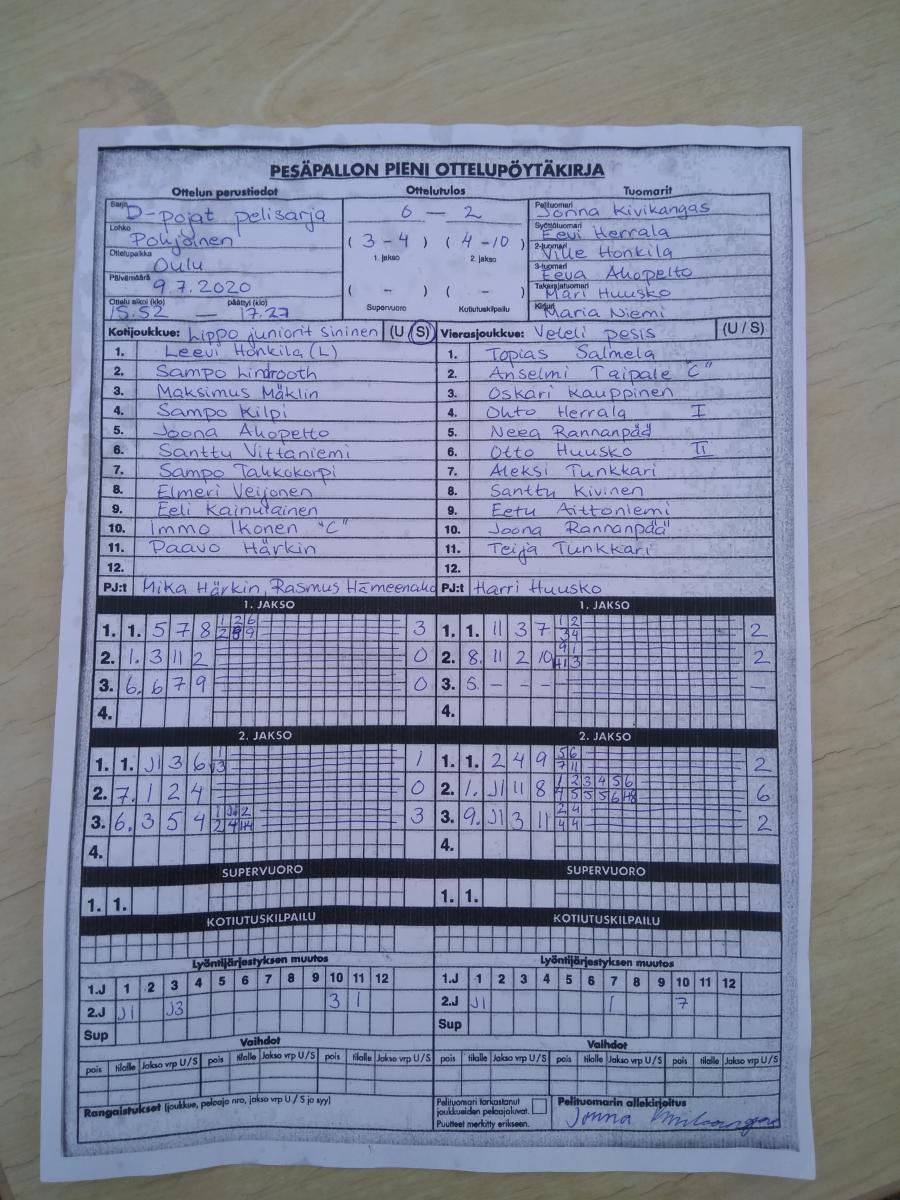 PESÄPALLON PIENI OTTELUPÖYTÄKIRJA
Ottelun perustiedot Ottelutulos Tuomarit
Sarja D-pojat pelisarja
Lohko Pohjoinen
Ottelupaikka Oulu
Päivämäärä 9.7.2020
Ottelu alkoi (klo) 15.52 — päättyi (klo) 17.27
0 — 2
( 3 - 4 ) ( 4 - 10 )
1. jakso 2. jakso
( - ) ( - )
Supervuoro Kotiutuskilpailu
Pelituomari Jonna Kivikangas
Syöttötuomari Eevi Herrala
2-tuomari Ville Honkila
3-tuomari Eeva Ahopelto
Takarajatuomari Mari Huusko
Kirjuri Maria Niemi
Kotijoukkue: Lippo juniorit sininen (U / S)
1. Leevi Honkila (L)
2. Sampo Lindrooth
3. Maksimus Mäklin
4. Sampo Kilpi
5. Joona Ahopelto
6. Santtu Vittaniemi
7. Sampo Takkokorpi
8. Elmeri Veijonen
9. Eeli Kainulainen
10. Immo Ikonen "C"
11. Paavo Härkin
12.
PJ:t Mika Härkin, Rasmus Hämeenaho
Vierasjoukkue: Veteli pesis (U / S)
1. Topias Salmela
2. Anselmi Taipale "C"
3. Oskari Kauppinen
4. Ohto Herrala I
5. Neea Rannanpää
6. Otto Huusko II
7. Aleksi Tunkkari
8. Santtu Kivinen
9. Eetu Aittoniemi
10. Joona Rannanpää
11. Teija Tunkkari
12.
PJ:t Harri Huusko
1. JAKSO
1. 1. 5 7 8 3
2. 1. 3 11 2 0
3. 6. 6 7 9 0
4.
1. JAKSO
1. 1. 11 3 7 1 2 2
3 4
2. 8. 11 2 10 2
3. 5. - - - —
4.
2. JAKSO
1. 1. J1 3 6 1
2. 7. 1 2 4 0
3. 6. 3 5 4 3
4.
2. JAKSO
1. 1. 2 4 9 5 6 2
7 11
2. 1. J1 11 8 1 2 3 4 5 6 6
3. 9. J1 3 11 2 4 2
4 4
4.
SUPERVUORO
1. 1.
SUPERVUORO
1. 1.
KOTIUTUSKILPAILU
KOTIUTUSKILPAILU
Lyöntijärjestyksen muutos
1.J 1 2 3 4 5 6 7 8 9 10 11 12
2.J J1 J3 3 1
Sup
Lyöntijärjestyksen muutos
1.J 1 2 3 4 5 6 7 8 9 10 11 12
2.J J1 1 7
Sup
Vaihdot
pois tilalle Jakso vrp U/S pois tilalle Jakso vrp U/S pois tilalle Jakso vrp U/S
Vaihdot
pois tilalle Jakso vrp U/S pois tilalle Jakso vrp U/S pois tilalle Jakso vrp U/S
Rangaistukset (joukkue, pelaaja nro, jakso vrp U / S ja syy)
Pelituomari tarkastanut
joukkueiden pelaajaluvat.
Puutteet merkitty erikseen.
Pelituomarin allekirjoitus
Jonna